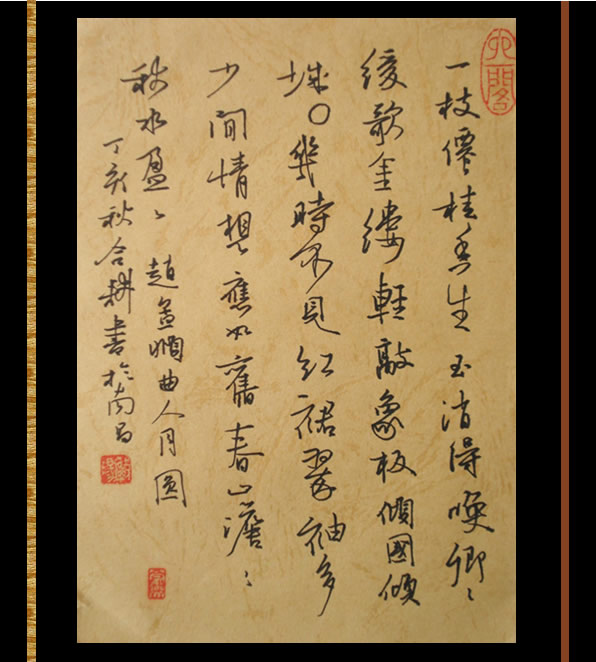 一枝僊桂香生玉消得喚卿〻
缓歌金缕輕敲象板傾國傾
城〇幾時不見红裙翠袖多
少間情想應如舊春山澹〻
秋水盈〻
趙孟頫曲人月圓
丁亥秋合耕書於南昌